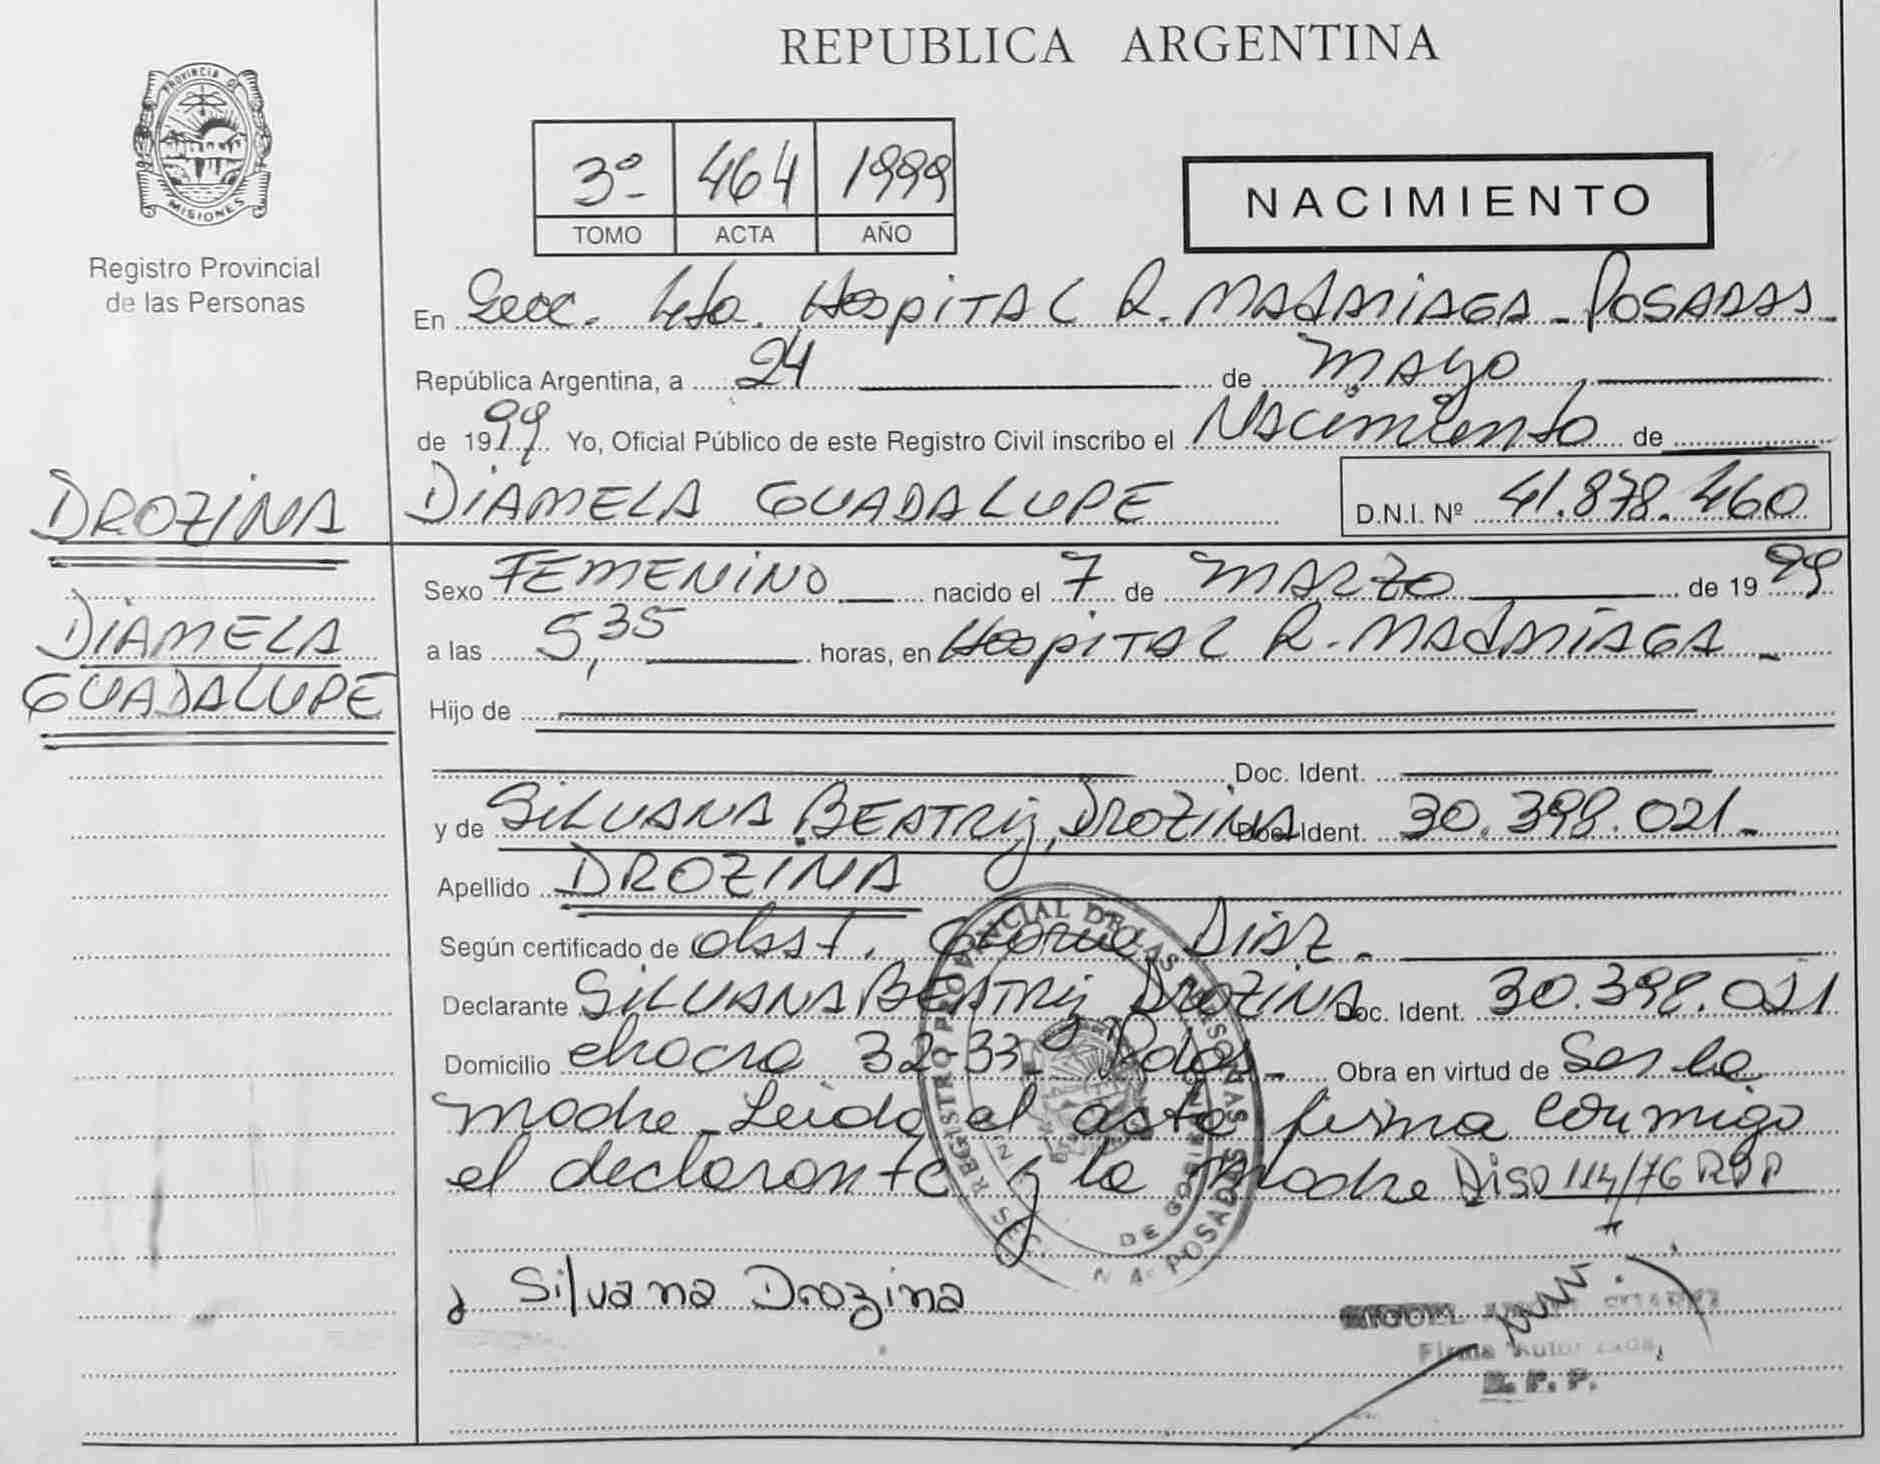 REPUBLICA ARGENTINA
PROVINCIA DE
MISIONES
Registro Provincial
de las Personas
3º- 464 1999
TOMO ACTA AÑO
NACIMIENTO
En Secc. 4ta. Hospital R. Madariaga - Posadas -
República Argentina, a 24 de Mayo
de 1999 Yo, Oficial Público de este Registro Civil inscribo el Nacimiento de
DROZINA
DIAMELA GUADALUPE D.N.I. Nº 41.878.460
DIAMELA
GUADALUPE
Sexo FEMENINO nacido el 7 de MARZO de 1999
a las 5,35 horas, en Hospital R. Madariaga -
Hijo de
Doc. Ident.
y de SILVANA BEATRIZ DROZINA Doc. Ident. 30.398.021-
Apellido DROZINA
Según certificado de obst. Gloria Diaz -
Declarante SILVANA BEATRIZ DROZINA Doc. Ident. 30.398.021
Domicilio chacra 32-33- Pdas - Obra en virtud de Ser la
madre - Leida el acta firma conmigo
el declarante y la madre Disp 114/76 RPP
REGISTRO PROVINCIAL DE LAS PERSONAS
POSADAS
Silvana Drozina
MIGUEL
Firma Autorizada
R. P. P.